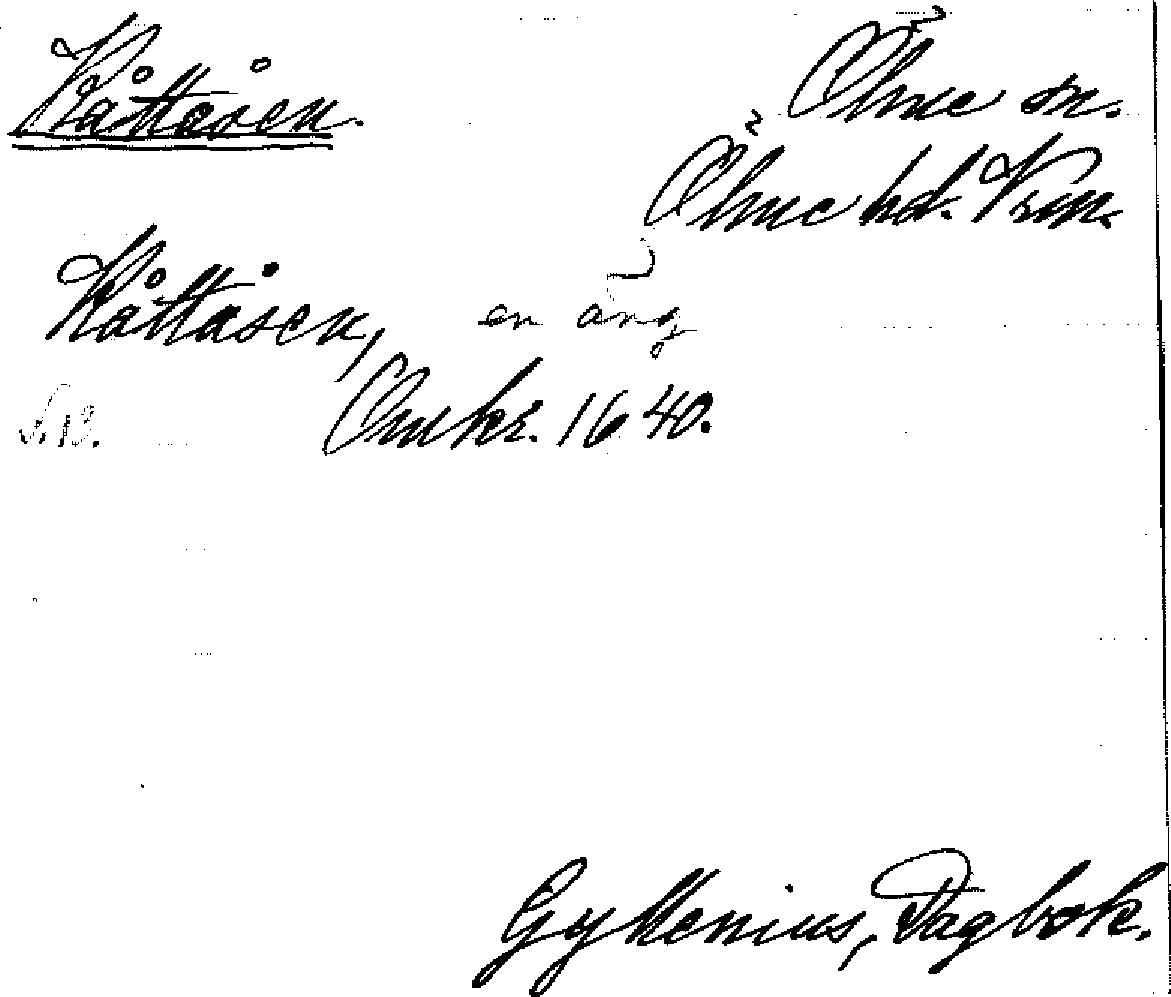 Råttåsen.
Ölme sn.
Ölme hd. Vrm.
Råttåsen, en äng
Omkr. 1640.
Gyllenius, Dagbok.